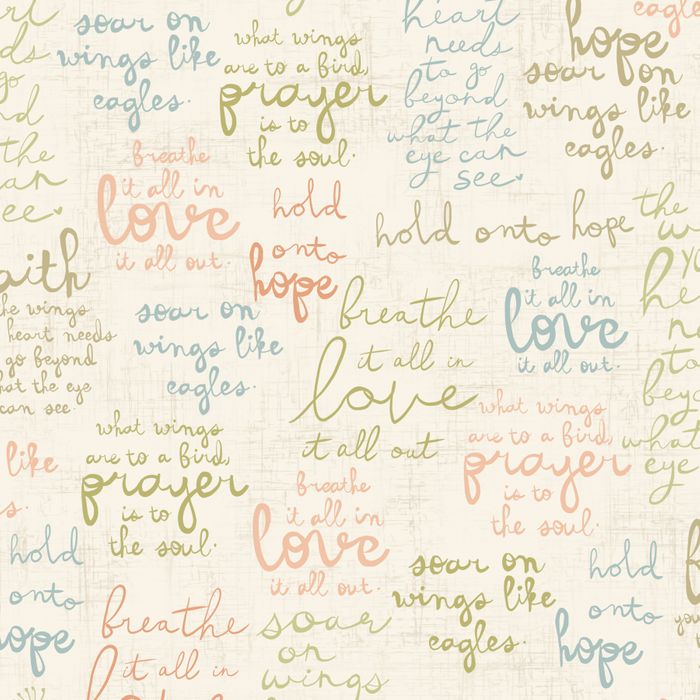 soar on
wings like
eagles.
what wings
are to a bird,
prayer
is to
the soul.
heart
needs
to go
beyond
what the
eye can
see
eagles
hope
soar on
wings like
eagles.
the
see
breathe
it all in
love
it all out.
hold
onto
hope
hold onto hope
the
aith
the wings
heart needs
go beyond
what the eye
can see.
soar on
wings like
eagles.
breathe
it all in
love
it all out
breathe
it all in
love
it all out.
to
beyond
what
eye
what wings
are to a bird,
prayer
is to
the soul.
what wings
are to a bird,
prayer
is to
the soul.
like
breathe
it all in
love
it all out.
hold
onto
hope
soar on
wings like
eagles.
hold
onto
hope
you
breathe
it all in
soar
on
wings